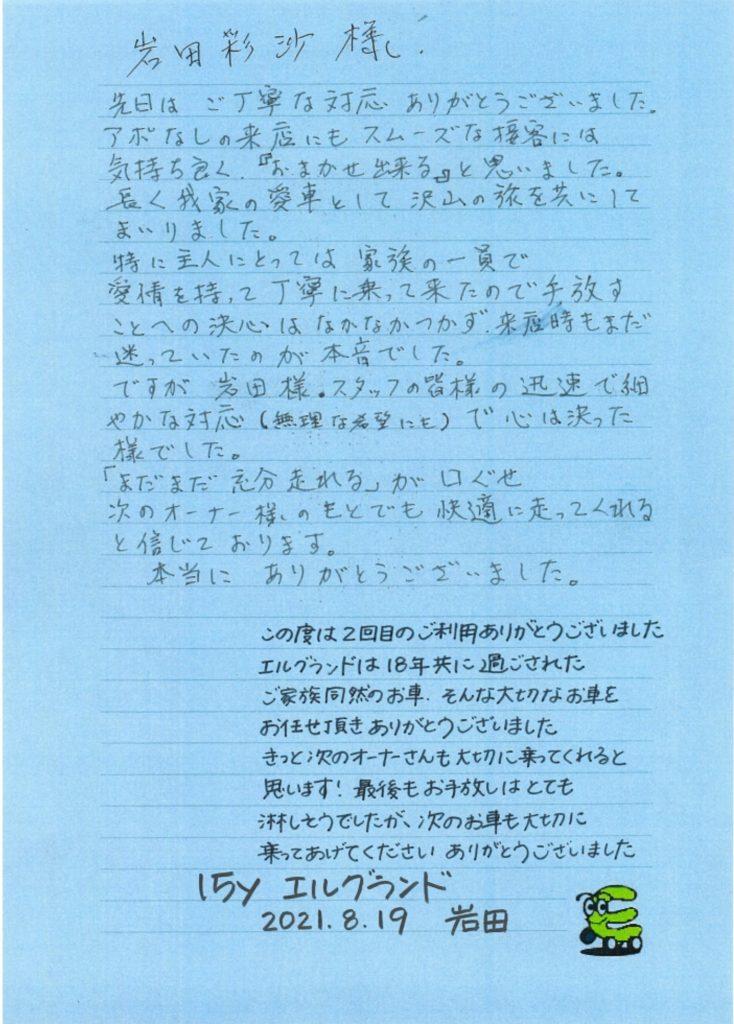 岩田彩沙 様
先日は ご丁寧な対応 ありがとうございました。
アポなしの来店にも スムーズな接客には
気持ち良く、『おまかせ出来る』と思いました。
長く我家の愛車として 沢山の旅を共にして
まいりました。
特に主人にとっては 家族の一員で
愛情を持って 丁寧に乗って来たので手放す
ことへの決心は なかなかつかず、来店時もまだ
迷っていたのが 本音でした。
ですが 岩田様。スタッフの皆様の 迅速で細
やかな対応(無理な希望にも)で 心は決った
様でした。
「まだまだ 充分 走れる」が 口ぐせ
次のオーナー様のもとでも 快適に走ってくれる
と信じております。
本当に ありがとうございました。
この度は2回目のご利用ありがとうございました
エルグランドは18年共に過ごされた
ご家族同然のお車、そんな大切なお車を
お任せ頂きありがとうございました
きっと次のオーナーさんも大切に乗ってくれると
思います! 最後もお手放しはとても
淋しそうでしたが、次のお車も大切に
乗ってあげてください ありがとうございました
15y エルグランド
2021.8.19 岩田